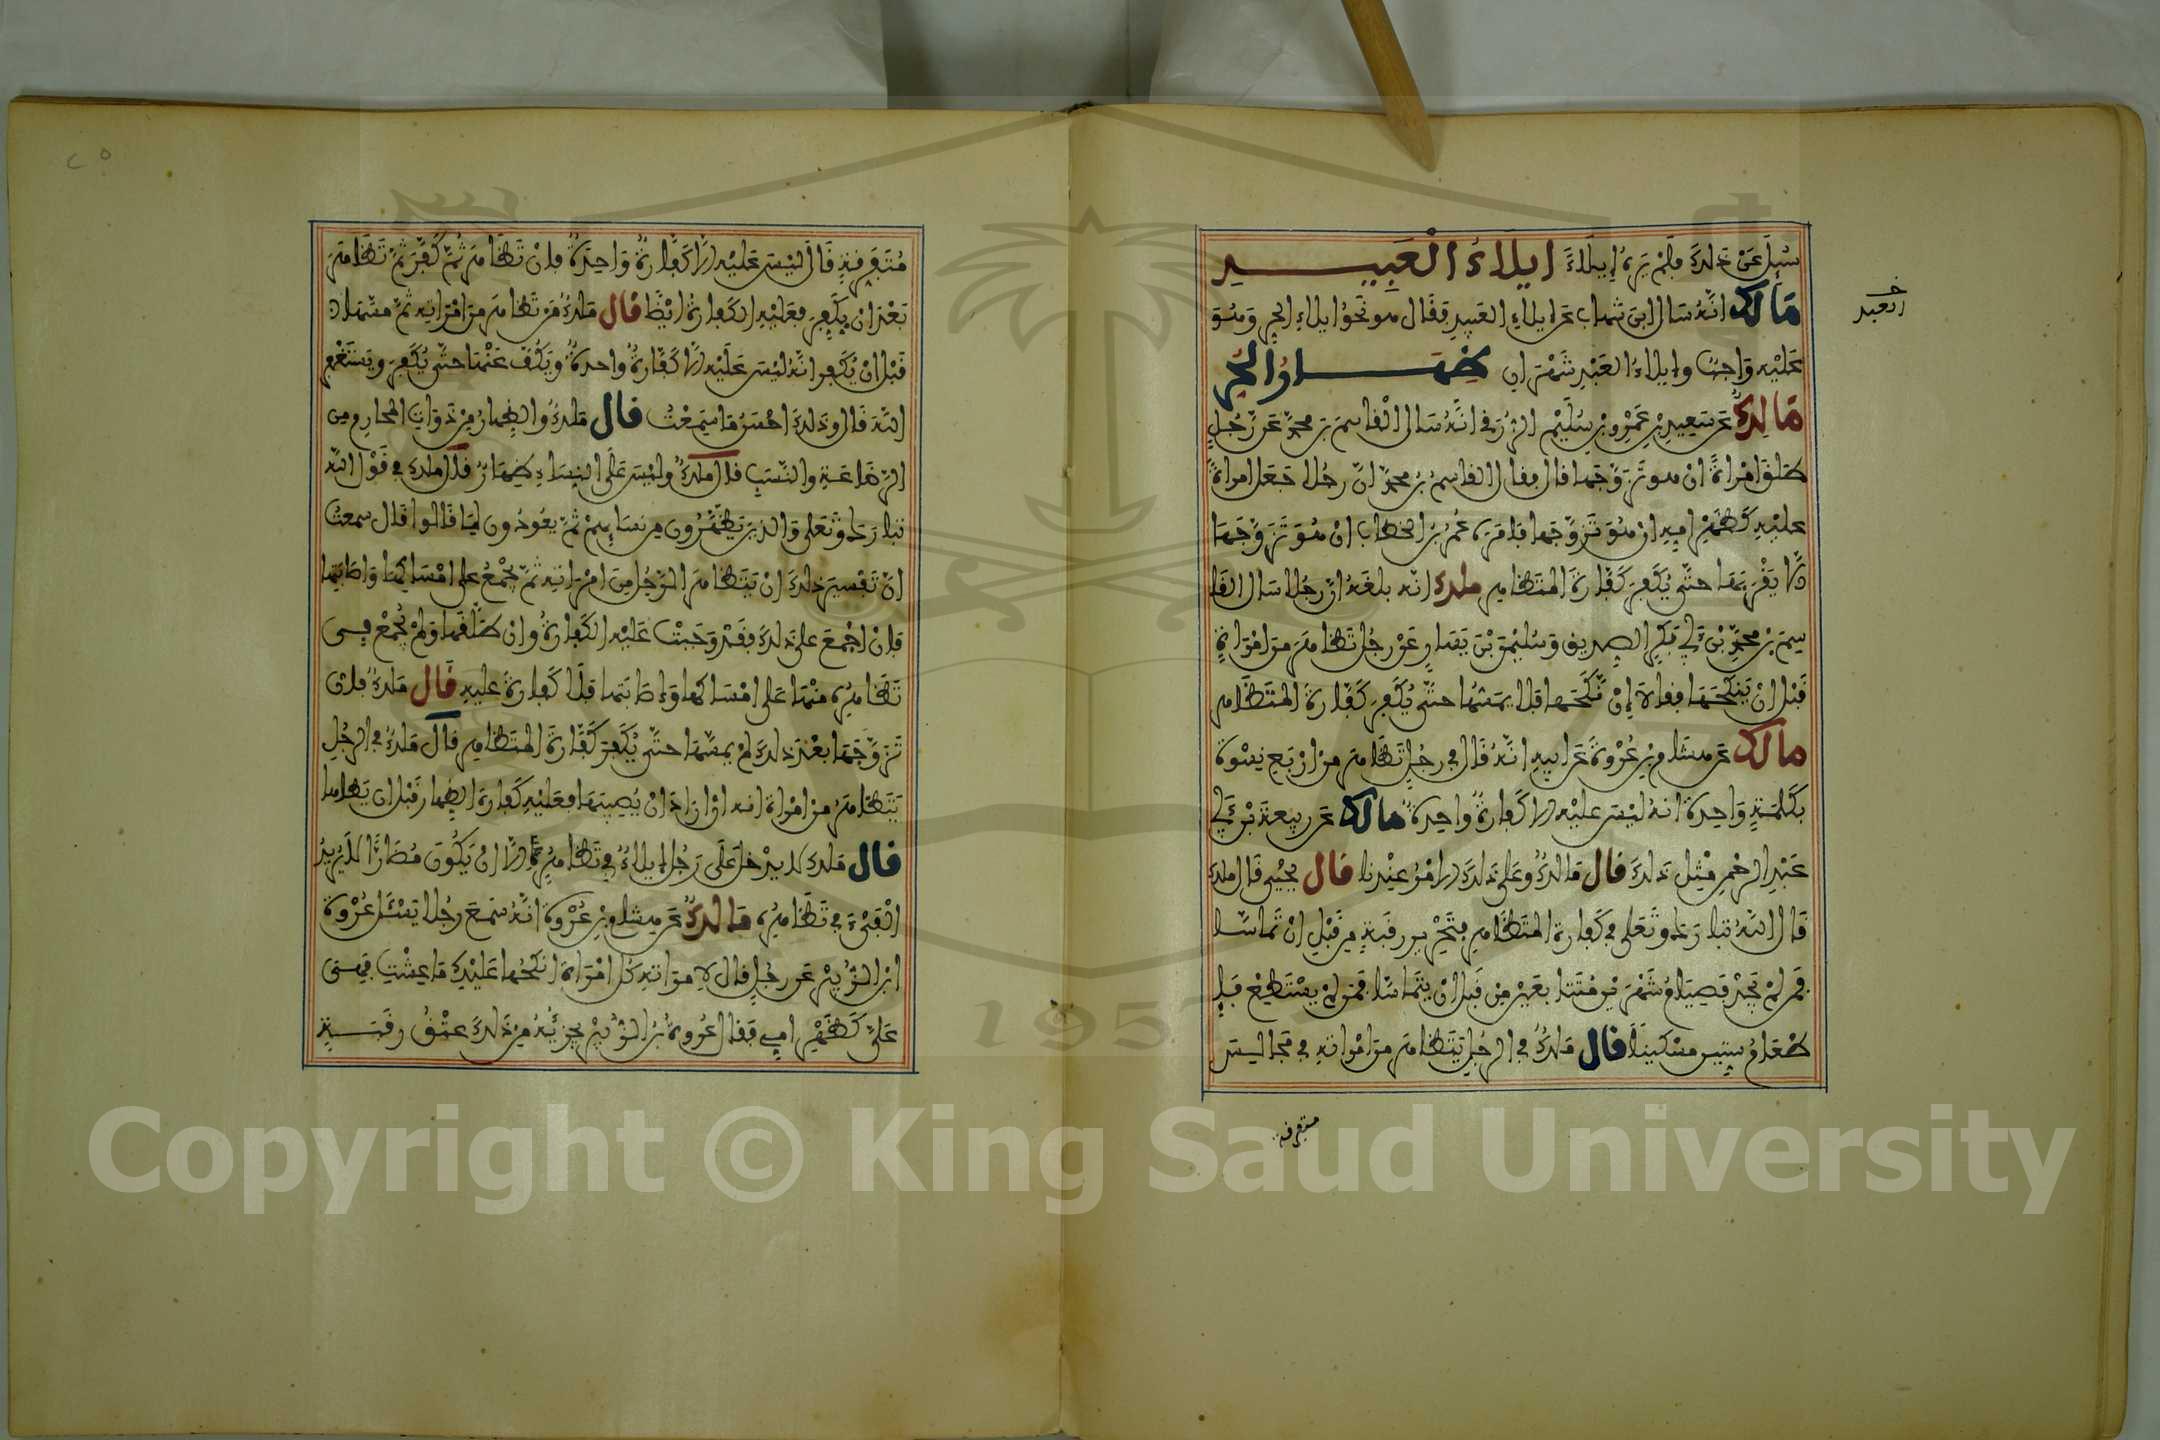 سُئِلَ عَنْ ذَلِكَ فَلَمْ يَرَهُ إِيلَاءً إيلاءُ الْعَبِيدِ
مَالك انه سَال ابن شهاب عن ايلاءِ العَبيدِ فقال هو نحوُ ايلاءِ الحر وَهُوَ
عَلَيْهِ وَاجبٌ وإيلاءُ العَبْدِ شهْرَانِ ظِهَارُ الحُرِّ
مَالِكٌ عن سَعِيدِ بنِ عَمْرِو بنِ سُلَيْمٍ الزُرَقي انَّهُ سَال القَاسِمَ بنَ محمَّدٍ عن رَّجُلٍ
طلَّقَ امْرَاةً انْ هو تزَوَّجَها قال فقال القاسِمُ بنُ محمدٍ انَّ رجُلا جَعَل امراةً
عليْهِ كَظَهْرِ امِّهِ ان هُوَ تزَوَّجَها فامَرَه عُمَرُ بن الخطاب انْ هُوَ تزَوَّجَهَا
الَّا يَقْرَبَهَا حتَّى يُكَفِّرَ كَفَّارَةَ المُتَظَاهِرِ ملك انه بلغَهُ انَّ رجُلا سَال القَا
سِمَ بنَ محمَّدِ بْنِ أَبِي بَكْرٍ الصِديقِ وَسُلَيْمَنَ بْنَ يَسَارٍ عَنْ رجُلٍ تظَاهَرَ مِن امْرَاتِهِ
قَبْلَ انْ يَنكِحَهَا فقالا إنْ نَّكَحَها فلا يمَسَّهَا حتَّى يُكَفِّرَ كَفَّارَةَ المُتَظَاهِرِ
مالك عن هشَام بنِ عُرْوَةَ عن ابيهِ انَّهُ قَال في رجُلٍ تظَاهَرَ مِن ارْبَعِ نِسْوَةٍ
بكَلِمَةٍ وَاحِدَةٍ انه ليْسَ عليْهِ الا كَفَّارَةٌ واحِدَةٌ مالك عن ربيعَةَ بْنِ أَبِي
عَبْدِ الرحْمنِ مِثْلَ ذلِكَ قال مَالِكٌ وعَلَى ذلِكَ الامْرُ عِنْدنا قال يحْيَى قَال ملك
قَال اللّهُ تبارَكَ وتَعَلى في كَفَارَةِ المُتَظَاهِرِ فتَحْرِيرُ رقَبَةٍ مِن قَبْلِ انْ يتَماسَّا
فمَن لمْ يجِدْ فصِيَامُ شَهْرَيْنِ مُتَتَابِعَيْنِ مِن قَبْلِ انْ يَتَماسَّا فمَن لمْ يسْتَطِعْ فإ
طعَامُ سِتِّينَ مسْكِينًا قال ملِكٌ في الرجُلِ يَتَظَاهَرُ مِن امْرَاتِهِ في مَجَالِسَ
العبد
متفرقة
مُتَفَرِّقَةٍ قَال لَيْسَ عَليْهِ الا كَفَارَةٌ وَاحِدَةٌ فانْ تَظَاهَرَ ثُمَّ كَفَّرَ ثُمَّ تَظَاهَرَ
بَعْدَ انْ يُكَفِّرَ فعَلَيْهِ الكَفارَةُ ايْضًا قال ملِكٌ مَن تظَاهَرَ مِن امْرَاتِهِ ثمَّ مسَّهَا
قَبْلَ انْ يُكَفِّرَ انَّهُ لَيْسَ عَلَيْهِ الا كَفَّارَةٌ واحِدَةٌ ويَكُفُّ عَنْها حتَّى يُكَفِّرَ ويَسْتَغْفِرُ
اللّهَ قَال وذَلِكَ احْسَنُ مَا سَمِعْتُ قال ملِكٌ والظِهَارُ مِنْ ذوَاتِ المحارِمِ مِن
الرضَاعَةِ والنَّسَبِ سَواء قال ملِكٌ وليْسَ عَلَى النِسَاءِ ظِهَارٌ قال ملِكٌ في قَوْلِ اللّه
تبارَكَ وتَعَلى وَالذِينَ يَظَّهَّرُونَ مِن نسَائِهِمْ ثمَّ يعُودُونَ لِمَا قَالوا قَال سمعتُ
انَّ تَفْسِيرَ ذلِكَ انْ يَتَظَاهَرَ الرَّجُلُ مِنَ امْرَاتِهِ ثمَّ يُجْمِعُ على امْسَاكِهَا وَاصَابَتِهَا
فإنْ اجْمَعَ على ذلِكَ فقَدْ وَجَبَتْ عَليْهِ الكَفَّارَةُ وانْ طَلَّقَهَا وَلَمْ يُجْمِعْ بعد
تَظَاهُرِهِ مِنْهَا عَلى امْسَاكِهَا وَإصَابَتِهَا فلا كَفارَةَ عليهِ قَال ملِكٌ فان
تزَوَّجَهَا بعْدَ ذلِكَ لمْ يمسَّهَا حتَّى يُكَفِّرَ كَفَّارَةَ المُتَظَاهِرِ قال ملِكٌ في الرجُلِ
يَتَظَاهَرُ مِن امْرَاةٍ انه اذا ارَادَ انْ يُصِيبَهَا فعَليْهِ كَفارَةُ الظِهَارِ قَبْلَ ان يطَاها
قال ملك لا يدْخلُ عَلَى رَجُلٍ إيلاءٌ في تَظَاهُرِهِ الا انْ يكُونَ مُضَارًّا لا يُرِيدُ
انْ يفِىءَ في تَظَاهُرِهِ مَالِكٌ عن هِشَامِ بنِ عُرْوَةَ انَّهُ سَمِعَ رجُلا يَسْئَل عُرْوَةَ
ابْنَ الزُّبَيْرِ عَن رجُلٍ قال لامرَاتِهِ كُلُّ امْرَاةٍ انْكِحُهَا عَليْكِ مَا عِشْتِ فهِىَ
عَلَىَّ كَظَهْرِ امِّي فقَال عُرْوَةُ بنُ الزُّبَيْرِ يجْزِئُهُ مِنْ ذَلِكَ عِتْقُ رقَبَةٍ
Copyright © King Saud University
1957